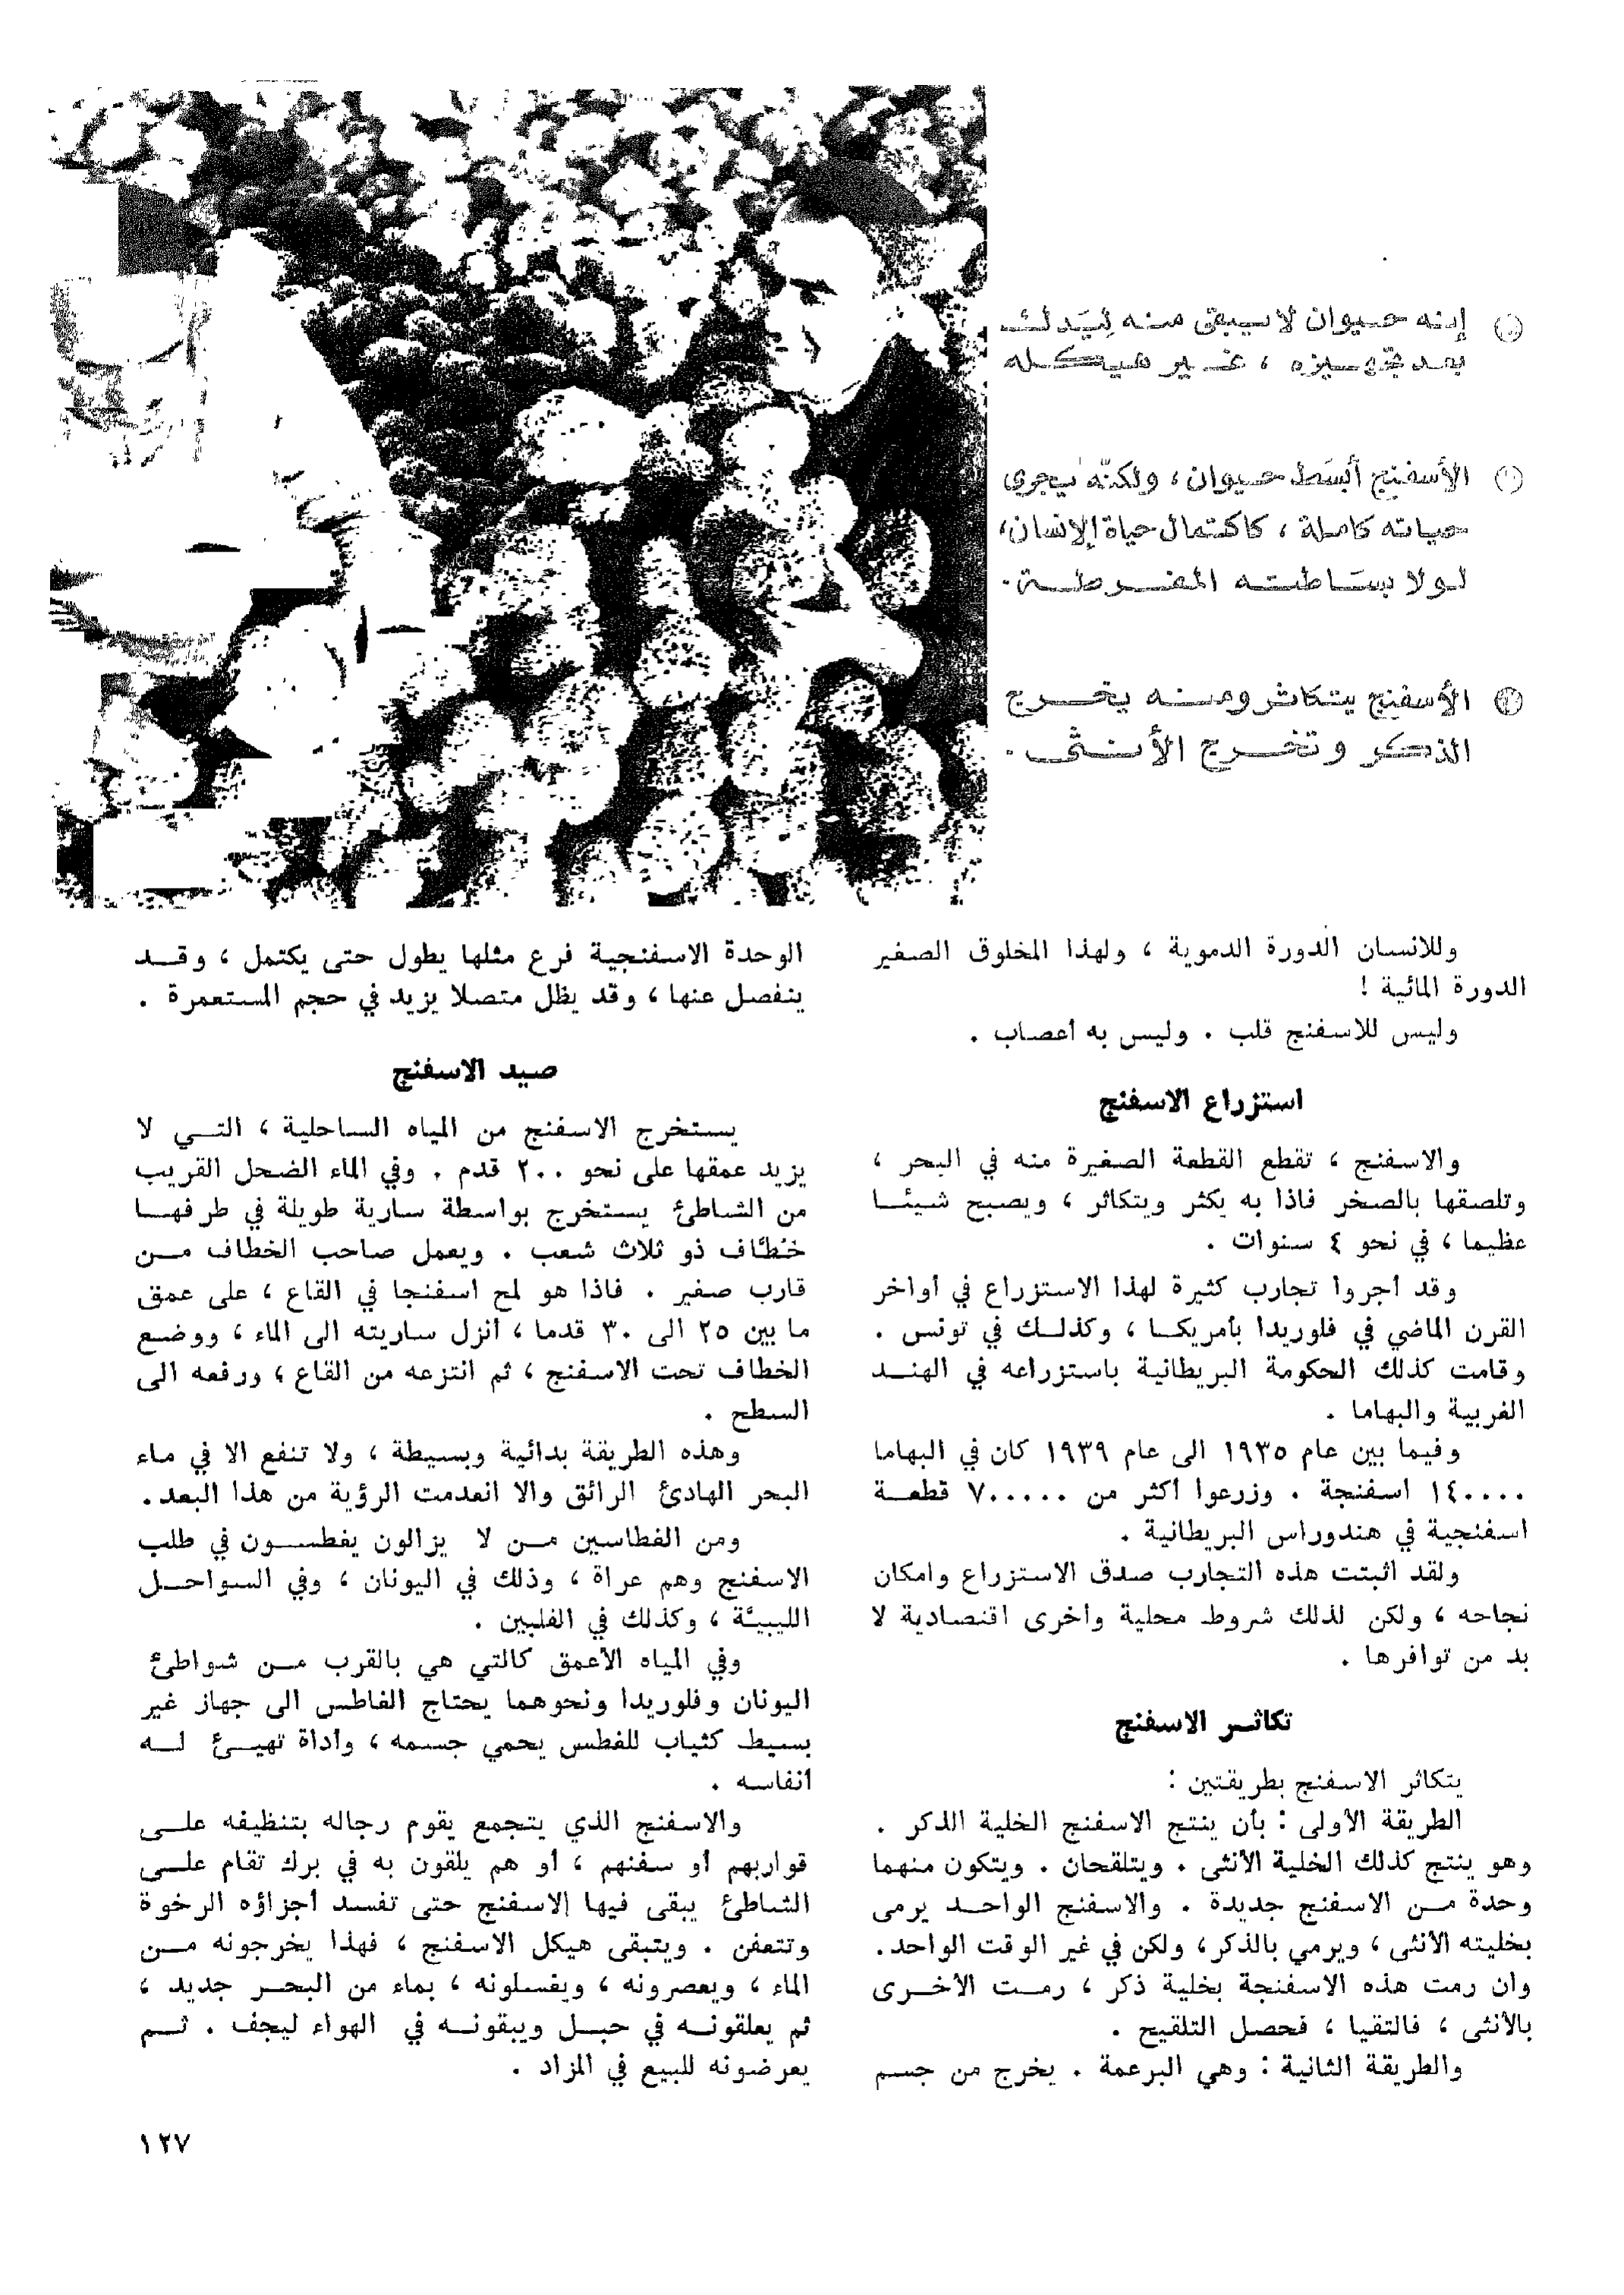 إنه حيوان لا يبقى منه لِيَدك
بعد تجهيزه ، غير هيكله
الأسفنج أبسَط حيوان ، ولكنّه يجرى
حياته كاملة ، كاكتمال حياة الإنسان ،
لولا بسَاطته المفرطة .
الأسفنج يتكاثر ومنه يخرج
الذكر وتخرج الأنثى .
وللانسان الدورة الدموية ، ولهذا المخلوق الصغير
الدورة المائية !
وليس للاسفنج قلب . وليس به أعصاب .
استزراع الاسفنج
والاسفنج ، تقطع القطعة الصغيرة منه في البحر ،
وتلصقها بالصخر فاذا به يكثر ويتكاثر ، ويصبح شيئا
عظيما ، في نحو ٤ سنوات .
وقد أجروا تجارب كثيرة لهذا الاستزراع في أواخر
القرن الماضي في فلوريدا بأمريكا ، وكذلك في تونس .
وقامت كذلك الحكومة البريطانية باستزراعه في الهند
الغربية والبهاما .
وفيما بين عام ١٩٣٥ الى عام ١٩٣٩ كان في البهاما
١٤٠٠٠٠ اسفنجة . وزرعوا أكثر من ٧٠٠٠٠٠ قطعة
اسفنجية في هندوراس البريطانية .
ولقد اثبتت هذه التجارب صدق الاستزراع وامكان
نجاحه ، ولكن لذلك شروط محلية وأخرى اقتصادية لا
بد من توافرها .
تكاثر الاسفنج
يتكاثر الاسفنج بطريقتين :
الطريقة الأولى : بأن ينتج الاسفنج الخلية الذكر .
وهو ينتج كذلك الخلية الأنثى . ويتلقحان . ويتكون منهما
وحدة من الاسفنج جديدة . والاسفنج الواحد يرمى
بخليته الأنثى ، ويرمي بالذكر ، ولكن في غير الوقت الواحد .
وان رمت هذه الاسفنجة بخلية ذكر ، رمت الأخرى
بالأنثى ، فالتقيا ، فحصل التلقيح .
والطريقة الثانية : وهي البرعمة . يخرج من جسم
الوحدة الاسفنجية فرع مثلها يطول حتى يكتمل ، وقد
ينفصل عنها ، وقد يظل متصلا يزيد في حجم المستعمرة .
صيد الاسفنج
يستخرج الاسفنج من المياه الساحلية ، التي لا
يزيد عمقها على نحو ٢٠٠ قدم . وفي الماء الضحل القريب
من الشاطئ يستخرج بواسطة سارية طويلة في طرفها
خُطّاف ذو ثلاث شعب . ويعمل صاحب الخطاف من
قارب صغير . فاذا هو لمح اسفنجا في القاع ، على عمق
ما بين ٢٥ الى ٣٠ قدما ، أنزل ساريته الى الماء ، ووضع
الخطاف تحت الاسفنج ، ثم انتزعه من القاع ، ورفعه الى
السطح .
وهذه الطريقة بدائية وبسيطة ، ولا تنفع الا في ماء
البحر الهادئ الرائق والا انعدمت الرؤية من هذا البعد .
ومن الغطاسين من لا يزالون يغطسون في طلب
الاسفنج وهم عراة ، وذلك في اليونان ، وفي السواحل
الليبيّة ، وكذلك في الفلبين .
وفي المياه الأعمق كالتي هي بالقرب من شواطئ
اليونان وفلوريدا ونحوهما يحتاج الغاطس الى جهاز غير
بسيط كثياب للغطس يحمي جسمه ، وأداة تهيئ له
أنفاسه .
والاسفنج الذي يتجمع يقوم رجاله بتنظيفه على
قواربهم أو سفنهم ، أو هم يلقون به في برك تقام على
الشاطئ يبقى فيها الاسفنج حتى تفسد أجزاؤه الرخوة
وتتعفن . ويتبقى هيكل الاسفنج ، فهذا يخرجونه من
الماء ، ويعصرونه ، ويغسلونه ، بماء من البحر جديد ،
ثم يعلقونه في حبل ويبقونه في الهواء ليجف . ثم
يعرضونه للبيع في المزاد .
١٢٧